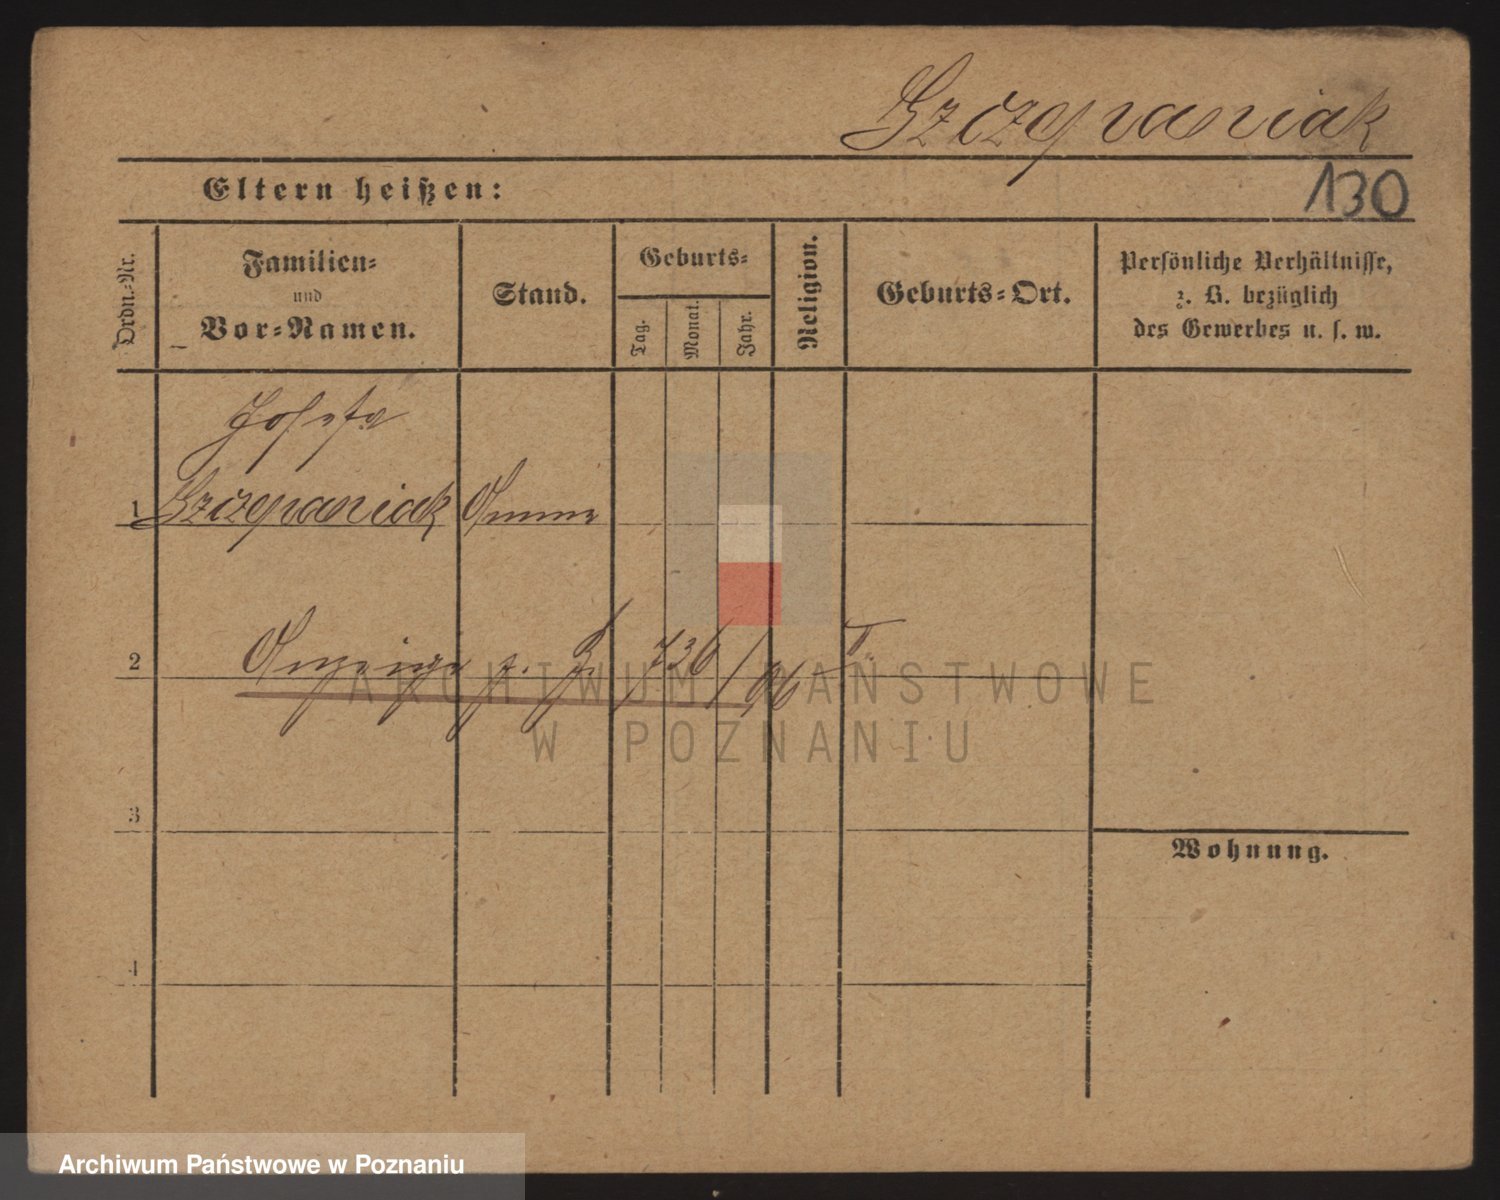 Szczepaniak
Eltern heißen:
130
Ordn.-Nr.
Familien-
und
Vor-Namen.
Stand.
Geburts-
Tag.
Monat.
Jahr.
Religion.
Geburts-Ort.
Persönliche Verhältnisse,
z. B. bezüglich
des Gewerbes u. s. w.
Josefa
1 Szczepaniak Amme
2 Anzeige z. J. 736/96
3
Wohnung.
4
ARCHIWUM PAŃSTWOWE
W POZNANIU
Archiwum Państwowe w Poznaniu